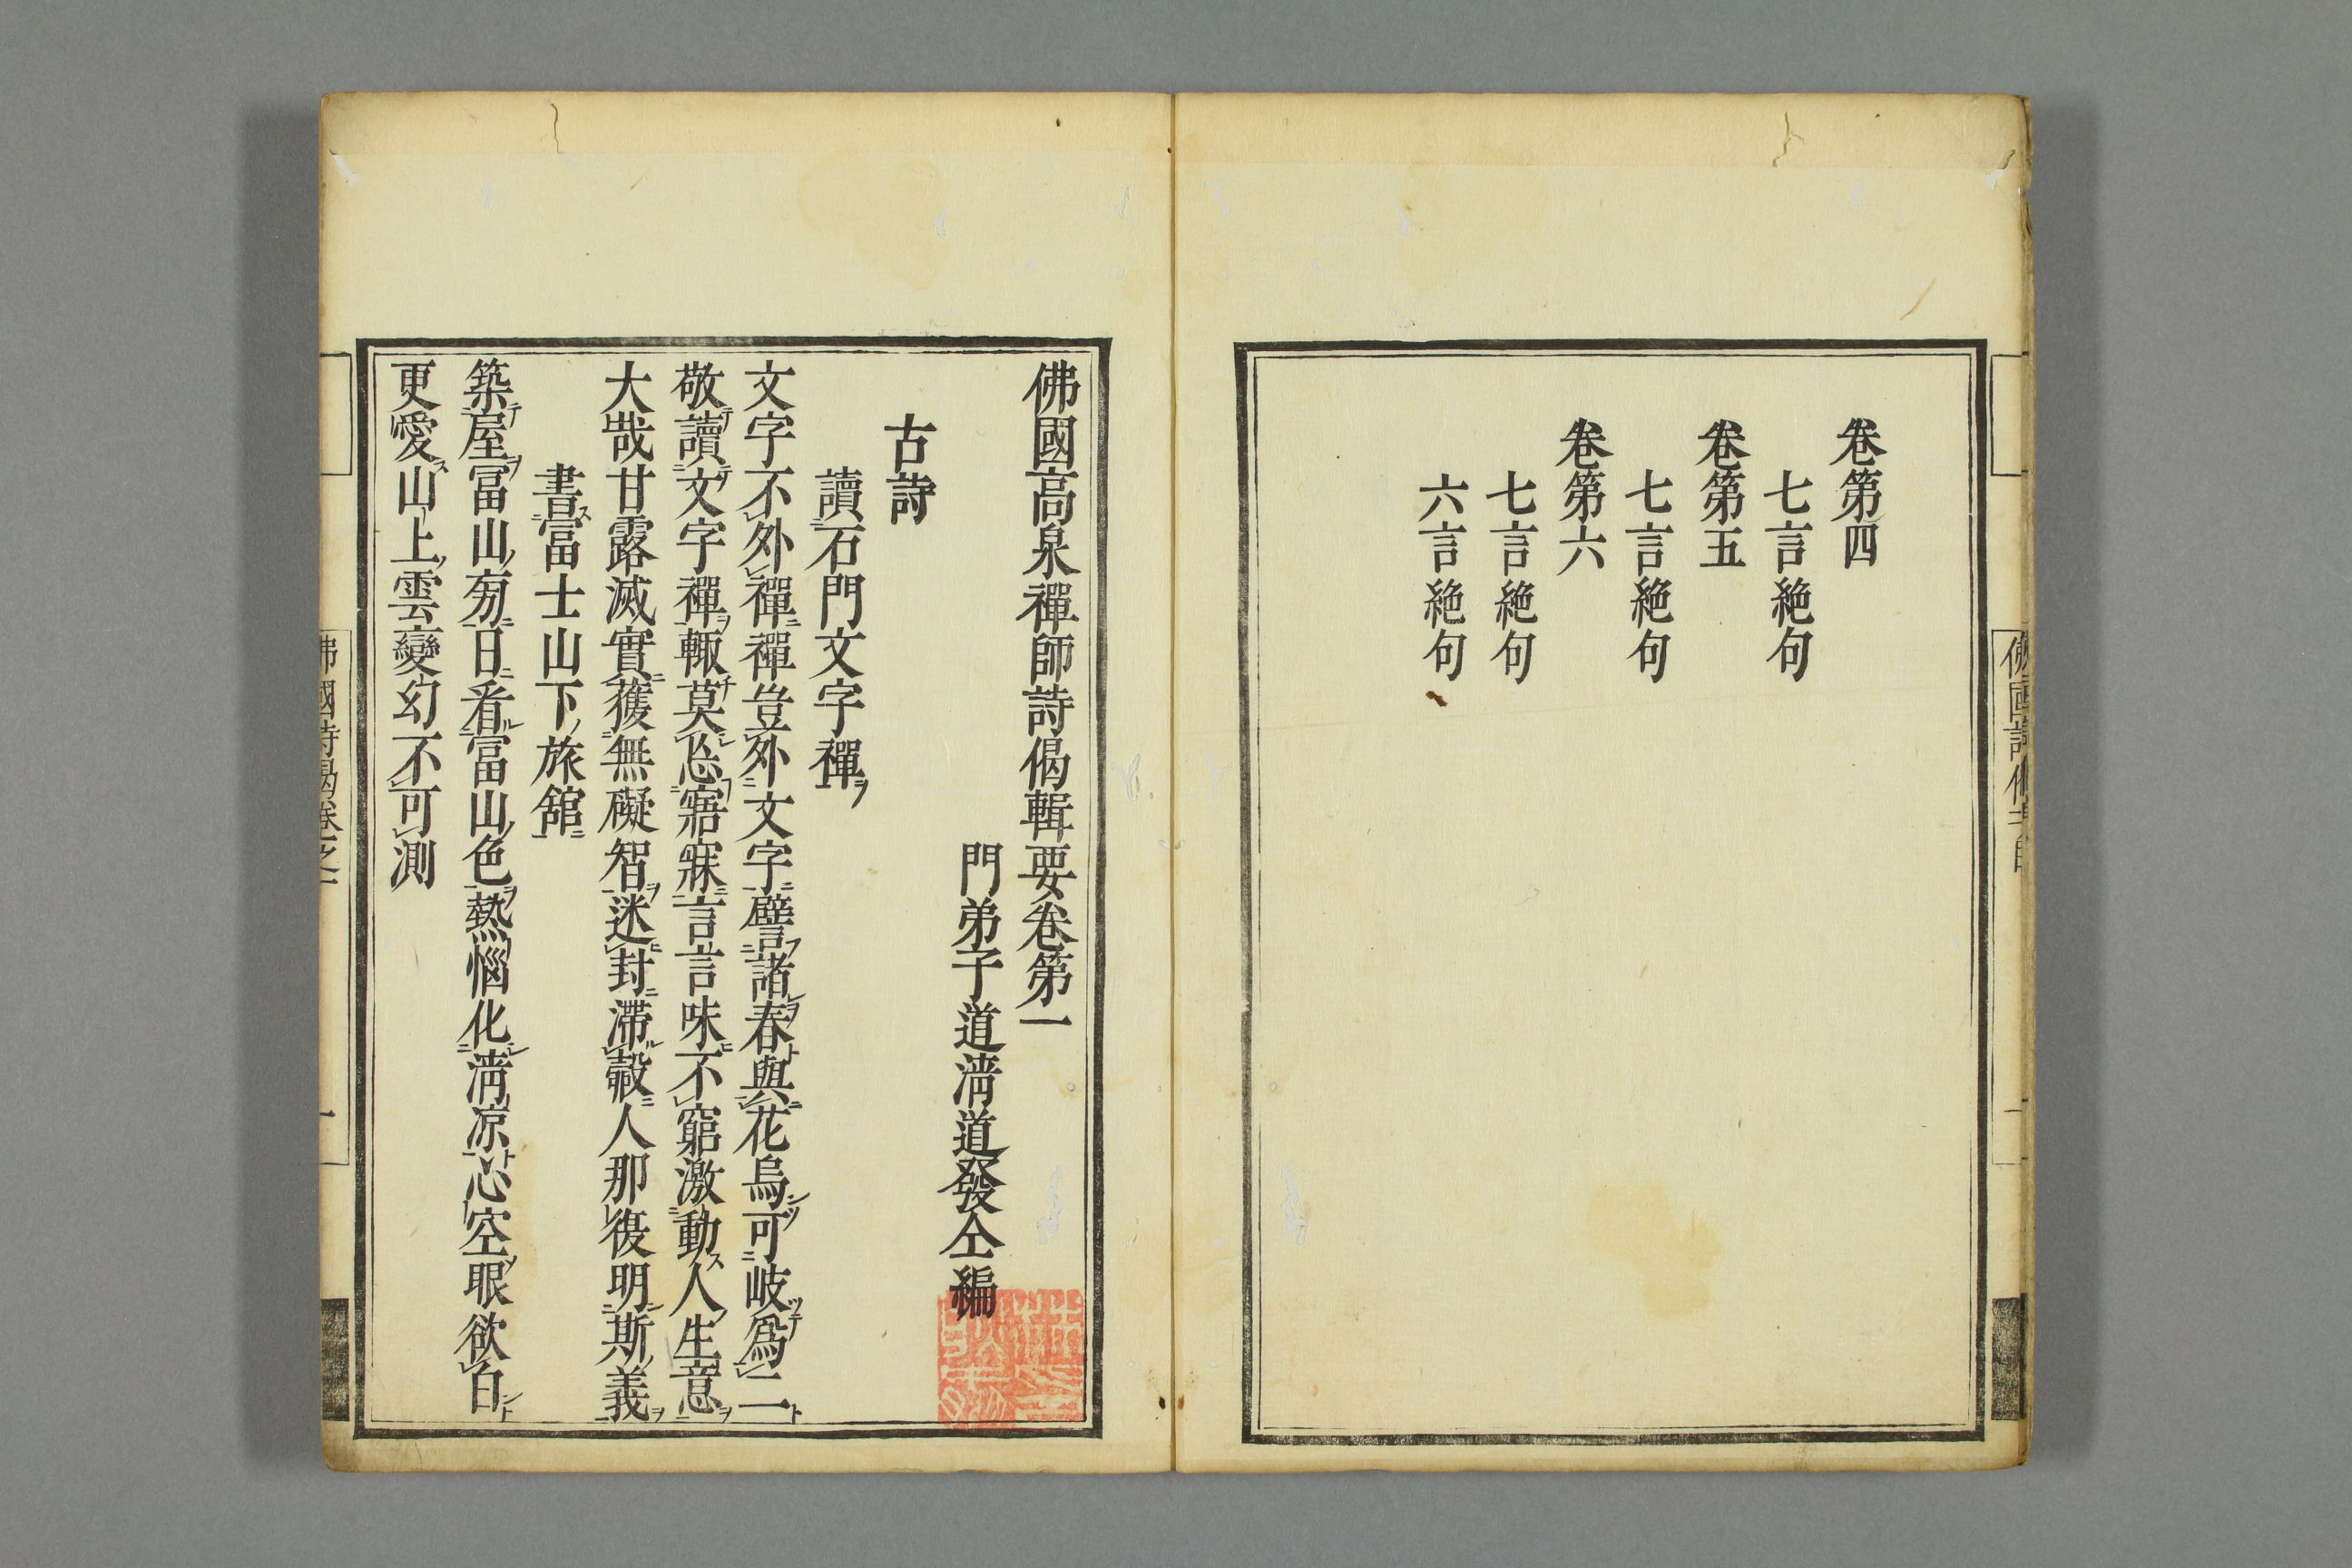 卷第四
七言絶句
卷第五
七言絶句
卷第六
七言絶句
六言絶句
佛國高泉禪師詩偈輯要卷第一
門弟子道清道發仝編
古詩
讀石門文字禪
文字不外禪禪豈外文字譬諸春與花烏可岐爲二
敬讀文字禪輙莫忘寤寐言言味不窮激動人生意
大哉甘露滅實獲無礙智迷封滯㲉人那復明斯義
書富士山下旅舘
築屋富山旁日看富山色熱惱化清凉心空眼欲白
更愛山上雲變幻不可測
佛國詩偈卷之一
一